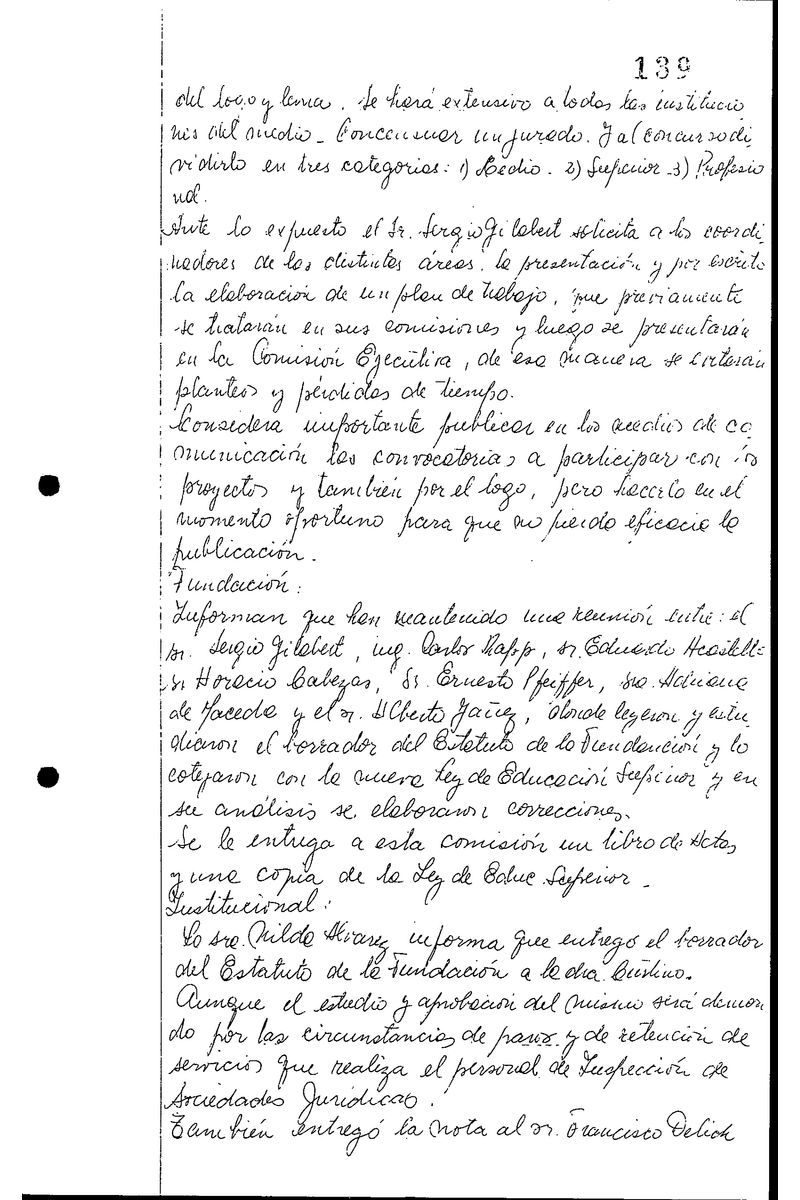 139
del logo y lema. Se hará extensivo a todas las institucio
nes del medio - Concensuar un jurado. Y al concurso di
vidirlo en tres categorias: 1) Medio. 2) Superior - 3) Profesio
nal.
Ante lo expuesto el Sr. Sergio Gilabert solicita a los coordi
nadores de las distintas áreas, la presentación y por escrito
la elaboración de un plan de trabajo, que previamente
se tratarán en sus comisiones y luego se presentarán
en la Comisión Ejecutiva, de esa manera se evitarán
planteos y pérdidas de tiempo.
Considera importante publicar en los medios de co
municación las convocatorias a participar con los
proyectos y también por el logo, pero hacerlo en el
momento oportuno para que no pierda eficacia la
publicación.
Fundación:
Informan que han mantenido una reunión entre: el
sr. Sergio Gilabert, ing. Carlos Rapp, sr. Eduardo
sr Horacio Cabezas, Sr. Ernesto Pfeiffer, sra. Adriana
de Maceda y el sr. Alberto Yañez, donde leyeron y estu
diaron el borrador del Estatuto de la Fundanción y lo
cotejaron con la nueva Ley de Educación Superior y en
su análisis se elaboraron correcciones.
Se le entrega a esta comisión un libro de Actas
y una copia de la Ley de Educ. Superior -
Institucional:
La sra. Nilda Alvarez informa que entregó el borrador
del Estatuto de la Fundación a la dra
Aunque el estudio y aprobación del mismo será demora
do por las circunstancias de paros y de retención de
servicios que realiza el personal de Inspección de
Sociedades Juridicas.
También entregó la nota al sr. Francisco Delich